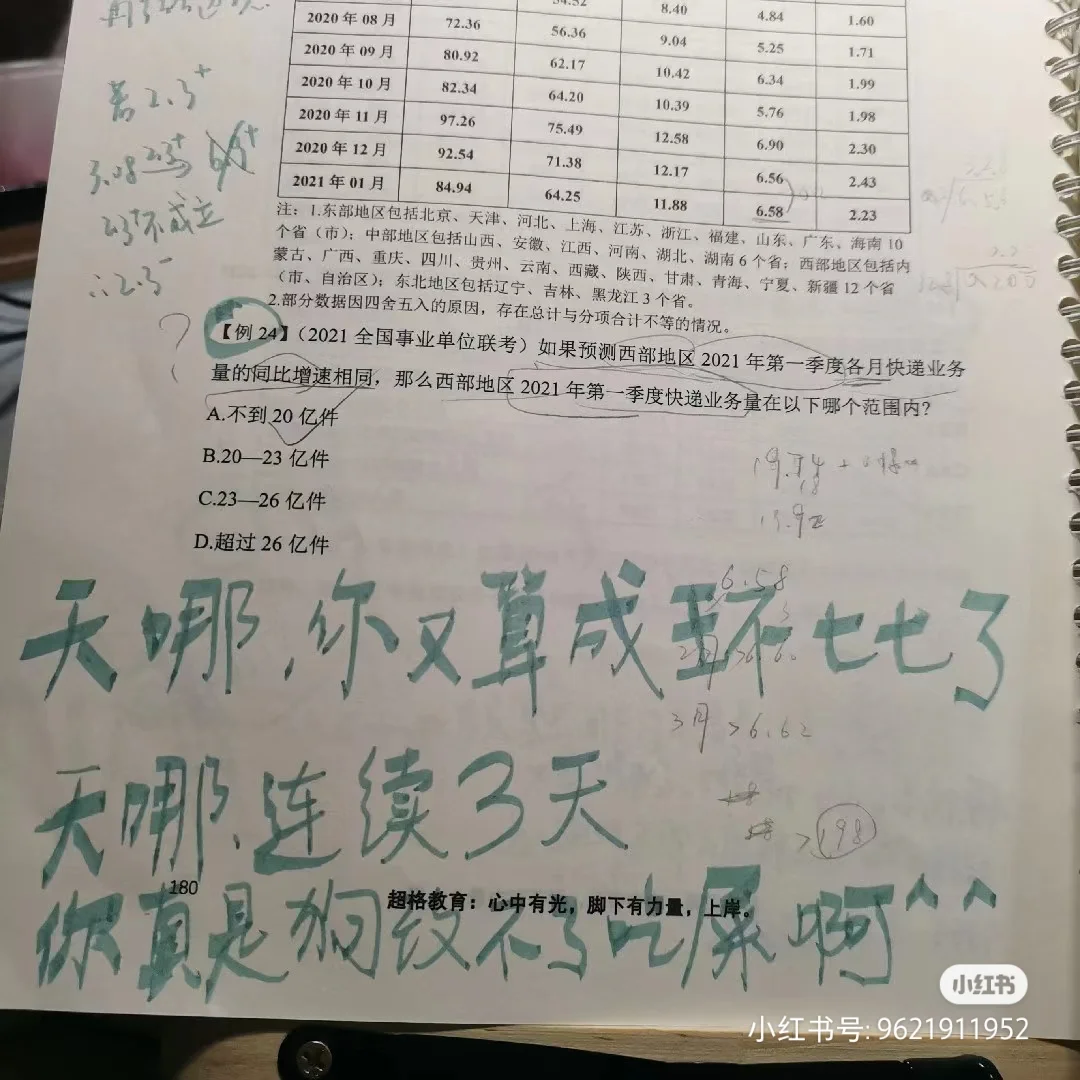 2020年08月 72.36 56.36 8.40 4.84 1.60
2020年09月 80.92 62.17 9.04 5.25 1.71
2020年10月 82.34 64.20 10.42 6.34 1.99
2020年11月 97.26 75.49 10.39 5.76 1.98
2020年12月 92.54 71.38 12.58 6.90 2.30
2021年01月 84.94 64.25 12.17 6.56 2.43
11.88 6.58 2.23
注：1.东部地区包括北京、天津、河北、上海、江苏、浙江、福建、山东、广东、海南10
个省（市）；中部地区包括山西、安徽、江西、河南、湖北、湖南6个省；西部地区包括内
蒙古、广西、重庆、四川、贵州、云南、西藏、陕西、甘肃、青海、宁夏、新疆12个省
（市、自治区）；东北地区包括辽宁、吉林、黑龙江3个省。
2.部分数据因四舍五入的原因，存在总计与分项合计不等的情况。
若2.3+
2.3+不成立
∴2.3-
?
【例24】（2021全国事业单位联考）如果预测西部地区2021年第一季度各月快递业务
量的同比增速相同，那么西部地区2021年第一季度快递业务量在以下哪个范围内？
A.不到20亿件
B.20—23亿件
C.23—26亿件
D.超过26亿件
6.58
天哪，你又算成环七七了
3月 >6.62
天哪，连续3天
>198
180
超格教育：心中有光，脚下有力量，上岸。
你真是狗改不了吃屎啊^^
小红书
小红书号: 9621911952